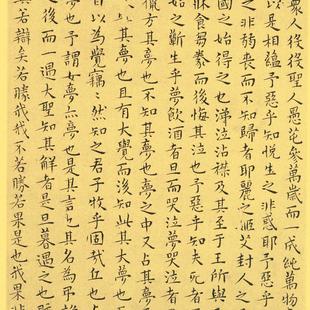 衆人役役聖人愚芚參萬歲而一成純萬物
以是相蘊予惡乎知悅生之非惑耶予惡乎
之非弱喪而不知歸者耶麗之姬艾封人之
國之始得之也涕泣沾襟及其至于王所與
牀食芻豢而後悔其泣也予惡乎知夫死者
始之蘄生乎夢飲酒者旦而哭泣夢哭泣者
獵方其夢也不知其夢也夢之中又占其夢
夢也且有大覺而後知此其大夢也
自以為覺竊〻然知之君乎牧乎固哉丘也
夢也予謂女夢亦夢也是其言也其名為弔
之後而一遇大聖知其解者是旦暮遇之也
與若辯矣若勝我我不若勝若果是也我果非